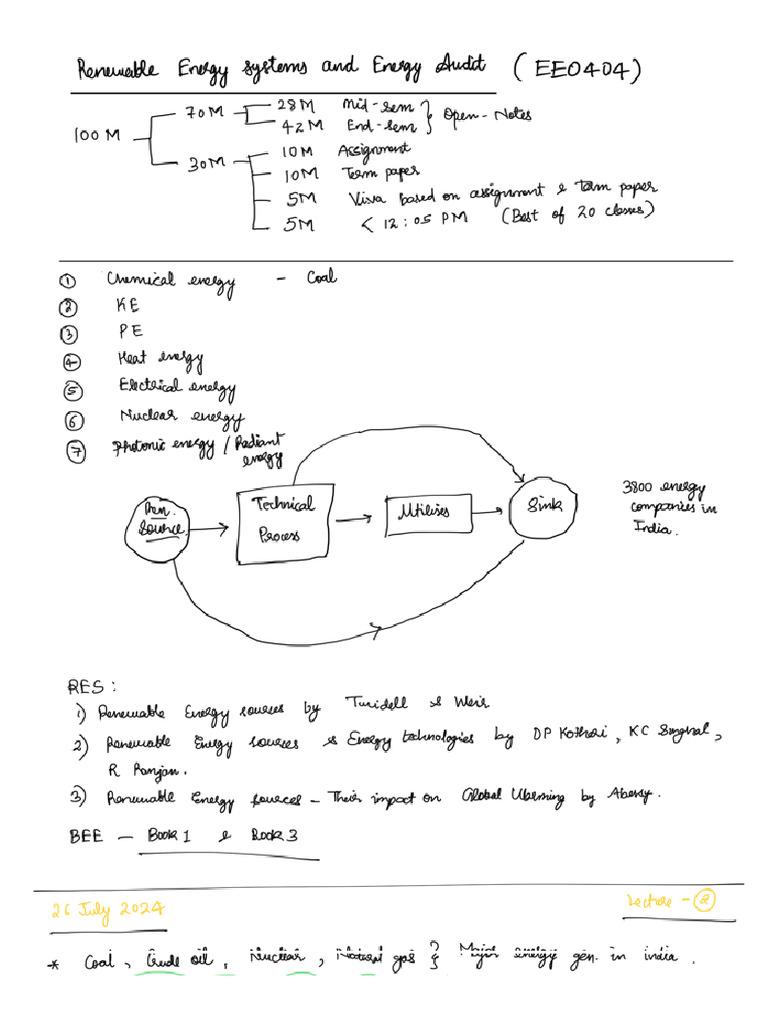 Renewable Energy systems and Energy Audit (EE0404)
100M
70M
28M Mid-sem
42M End-sem
Open-Notes
30M
10M Assignment
10M Term paper
5M Viva based on assignment & term paper
5M < 12:05 PM (Best of 20 classes)
① Chemical energy - Coal
② KE
③ PE
④ Heat energy
⑤ Electrical energy
⑥ Nuclear energy
⑦ Photonic energy / Radiant
energy
Ren.
Source
Technical
Process
Utilises
Sink
3800 energy
companies in
India.
RES:
1) Renewable Energy sources by Twidell & Weir
2) Renewable Energy sources & Energy technologies by DP Kothari, KC Singhal,
R Ranjan.
3) Renewable Energy Sources - Their impact on Global Warming by
BEE - Book 1 & Book 3
26 July 2024
Lecture - ②
* Coal, Crude oil, Nuclear, Natural gas } Major energy gen. in india.